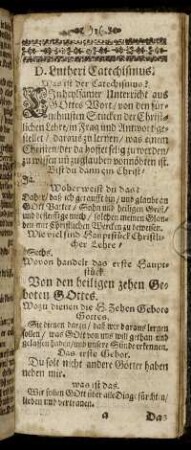 D. Lutheri Catechismus.
Was ist der Catechismus?
Ein heylsamer Unterricht aus
Gottes Wort, von den für-
nehmsten Stucken der Christ-
lichen Lehre, in Frag und Antwort ge-
stellet, daraus zu lernen, was einem
Christen der da hoffet selig zu werden,
zu wissen un zuglauben vonnöhten ist.
Bist du dann ein Christ?
Ja.
Woher weist du das?
Daher, daß ich getaufft bin, und glaube an
GOtt Vatter, Sohn und heiligen Geist,
und befleisse mich, solchen meinen Glau-
ben mit Christlichen Wercken zu beweisen.
Wie viel sind Hauptstück Christli-
cher Lehre?
Sechs.
Wovon handelt das erste Haupt-
stück.
Von den heiligen zehen Ge-
boten GOttes.
Wozu dienen die H. Zehen Gebote
Gottes.
Sie dienen darzu, daß wir daraus lernen
sollen, was GOtt von uns will gethan und
gelassen haben, und unsere Sünde erkennen.
Das erste Gebot.
Du solt nicht andere Götter haben
neben mir.
was ist das.
Wir sollen GOtt über alle Ding fürchten,
lieben und vertrauen.
a Das